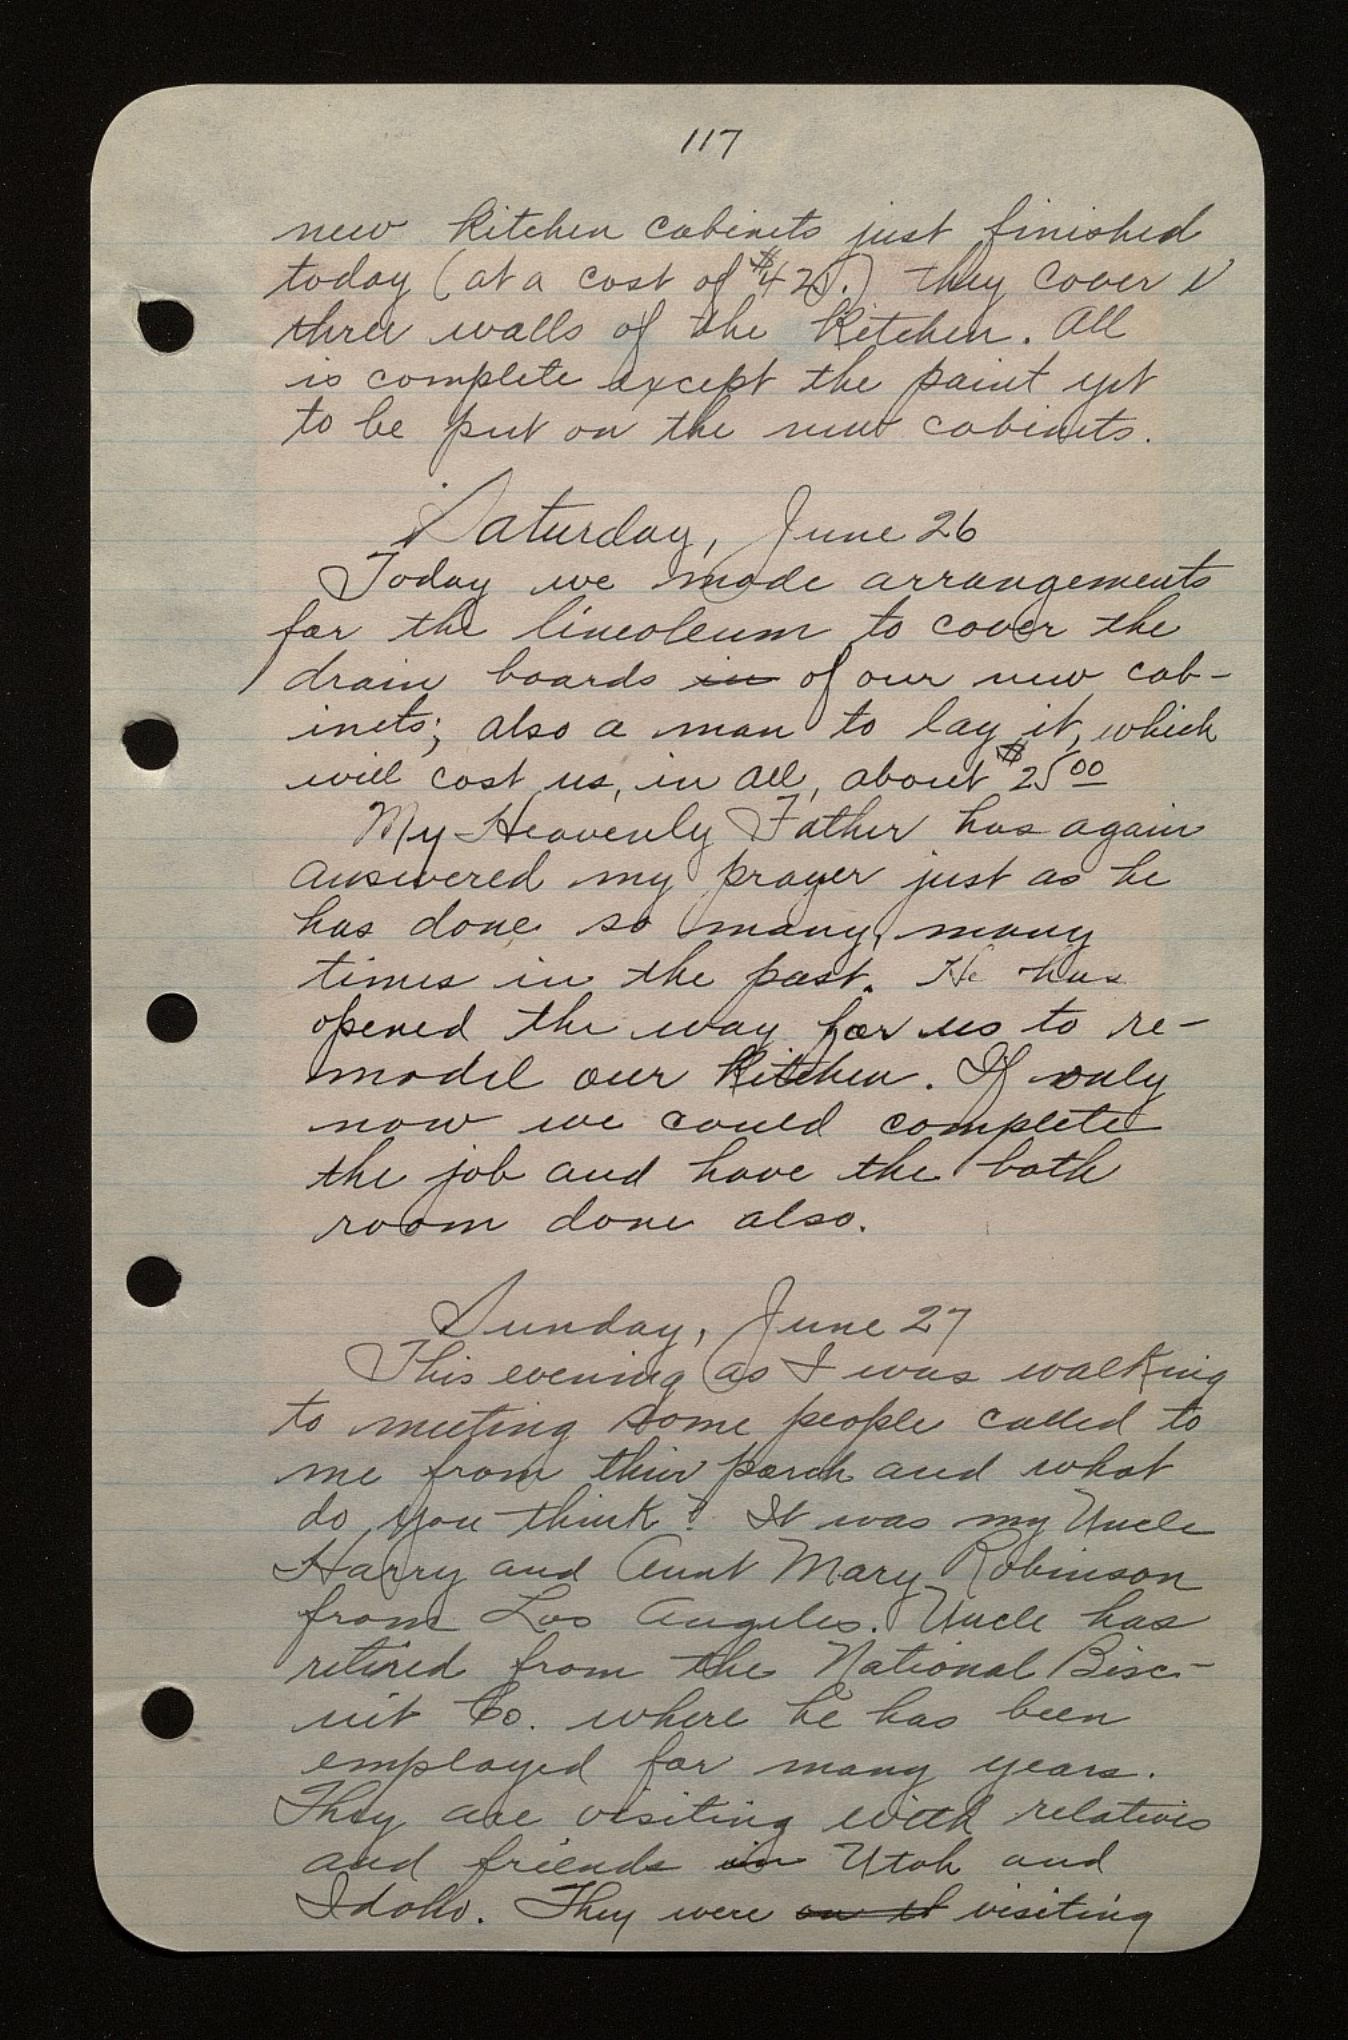 117
new kitchen cabinets just finished
today (at a cost of $425.) they cover
three walls of the kitchen. All
is complete except the paint yet
to be put on the new cabinets.
Saturday, June 26
Today we made arrangements
for the lineoleum to cover the
drain boards in of our new cab-
inets; also a man to lay it, which
will cost us, in all, about $2500
My Heavenly Father has again
answered my prayer just as he
has done so many, many
times in the past. He has
opened the way for us to re-
model our kitchen. If only
now we could complete
the job and have the bath
room done also.
Sunday, June 27
This evening as I was walking
to meeting some people called to
me from their porch and what
do you think? It was my Uncle
Harry and Aunt Mary Robinson
from Los Angeles. Uncle has
retired from the National Bisc-
uit Co. where he has been
employed for many years.
They are visiting with relatives
and friends in Utah and
Idaho. They were visiting